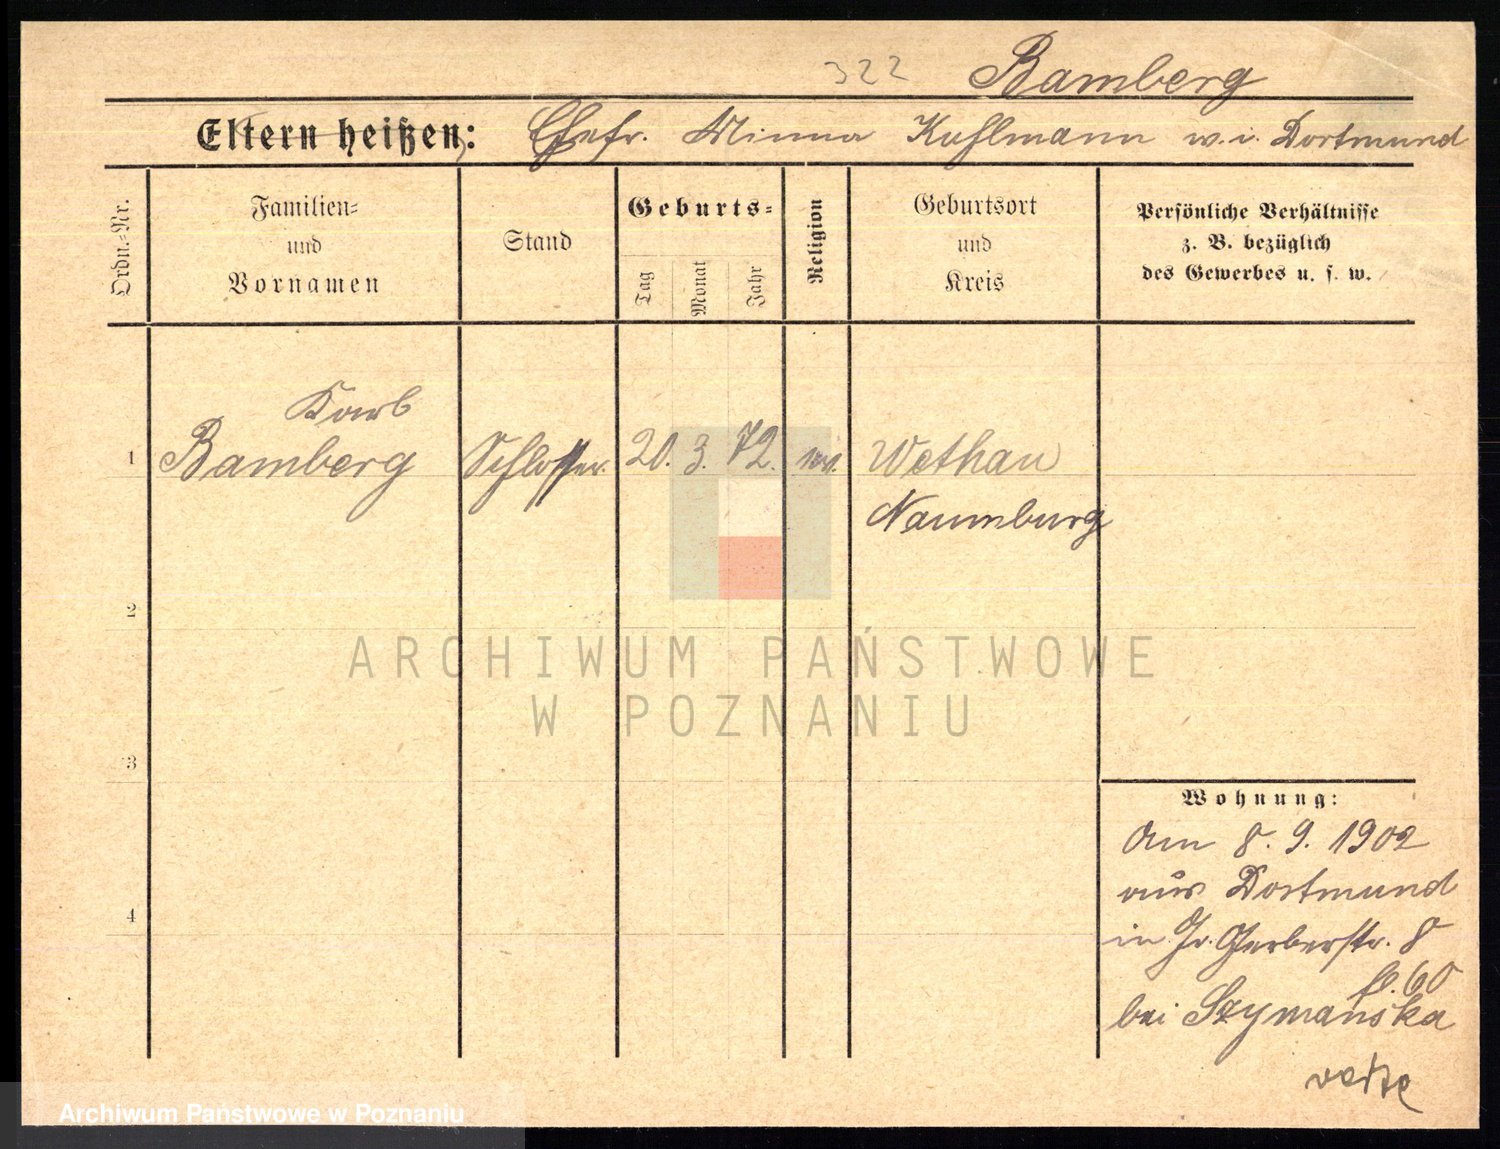 322 Bamberg
Eltern heißen: Ehefr. Minna Kuhlmann w. i. Dortmund
Ordn.-Nr.
Familien-
und
Vornamen
Stand
Geburts-
Tag
Monat
Jahr
Religion
Geburtsort
und
Kreis
Persönliche Verhältnisse
z. B. bezüglich
des Gewerbes u. s. w.
Karl
1 Bamberg Schlosser 20. 3. 72. ev. Wethau
Naumburg
2
ARCHIWUM PAŃSTWOWE
W POZNANIU
3
Wohnung:
Am 8. 9. 1902
aus Dortmund
4
in Gr. Gerberstr. 8
bei Szymańska
Archiwum Państwowe w Poznaniu